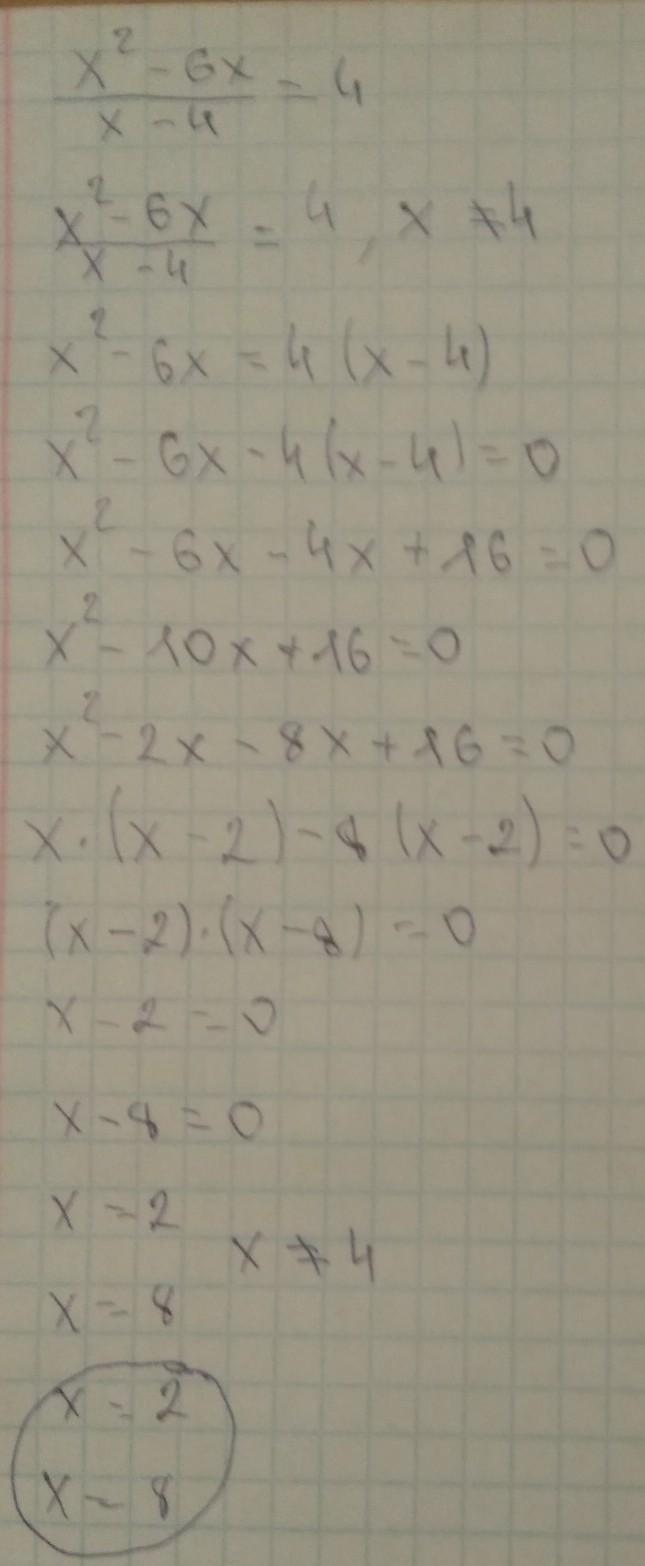 x² - 6x / x - 4 = 4
x² - 6x / x - 4 = 4, x ≠ 4
x² - 6x = 4(x - 4)
x² - 6x - 4(x - 4) = 0
x² - 6x - 4x + 16 = 0
x² - 10x + 16 = 0
x² - 2x - 8x + 16 = 0
x · (x - 2) - 8(x - 2) = 0
(x - 2) · (x - 8) = 0
x - 2 = 0
x - 8 = 0
x = 2
x ≠ 4
x = 8
x = 2
x = 8